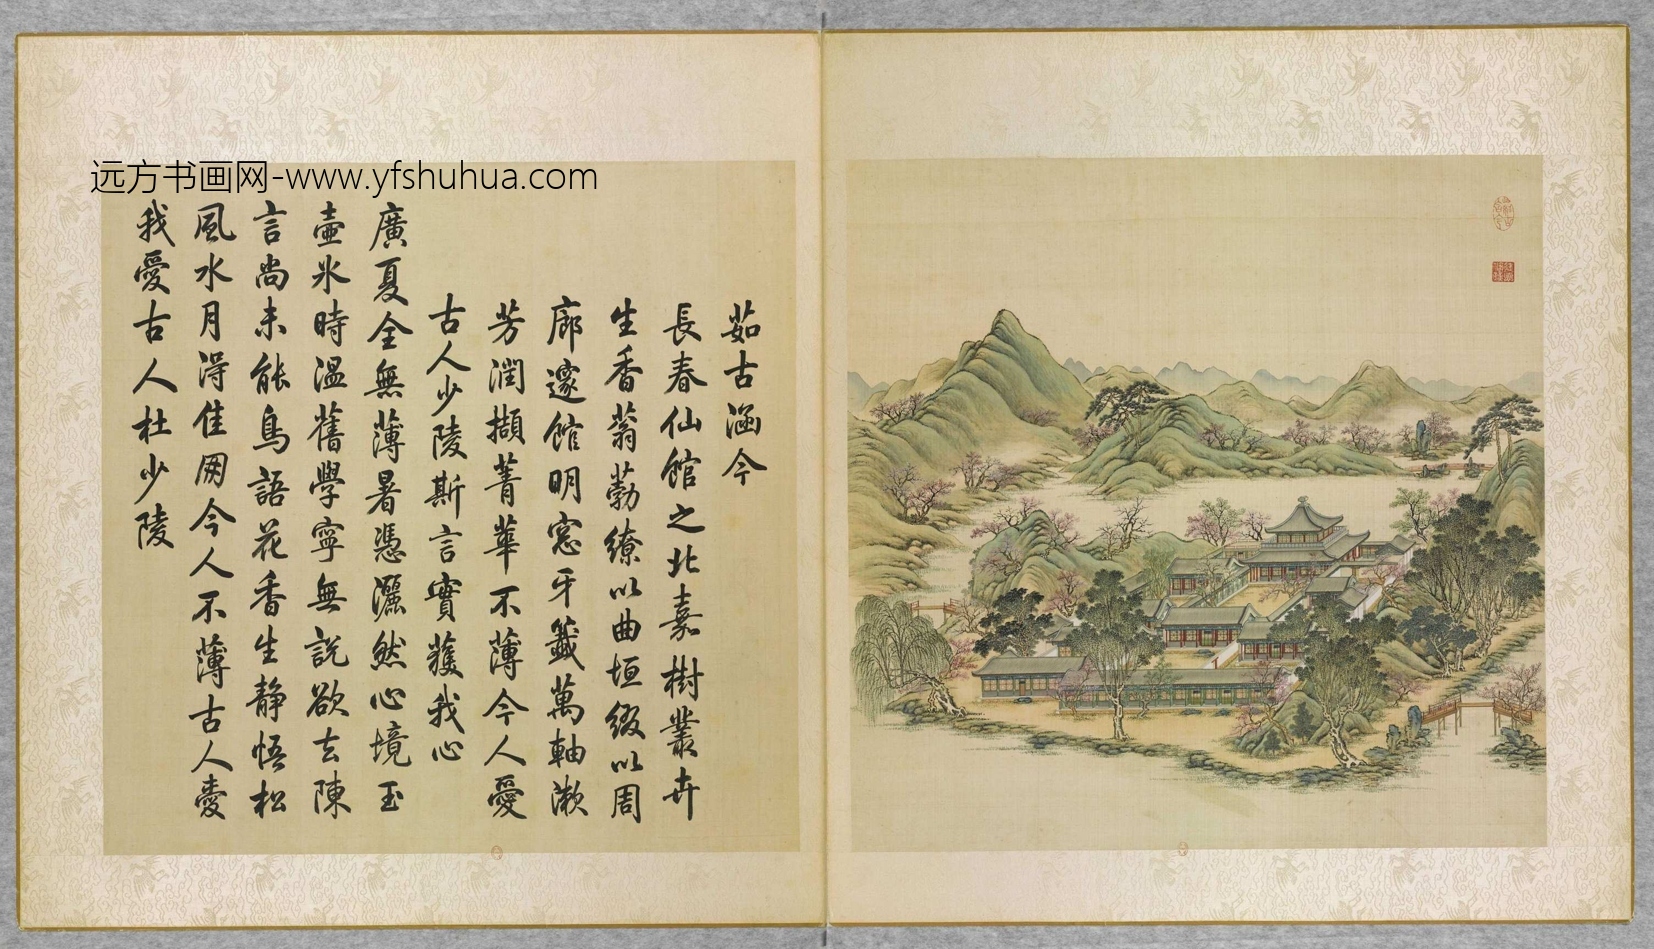 远方书画网-www.yfshuhua.com
茹古涵今
長春仙館之北嘉樹叢卉
生香蓊葧繚以曲垣缀以周
廊邃館明窓牙籤萬軸漱
芳潤擷菁華不薄今人愛
古人少陵斯言實獲我心
廣夏全無薄暑憑灑然心境玉
壷氷時温舊學寧無說欲去陳
言尚未能鳥語花香生静悟松
風水月淂佳朋今人不薄古人愛
我愛古人杜少陵